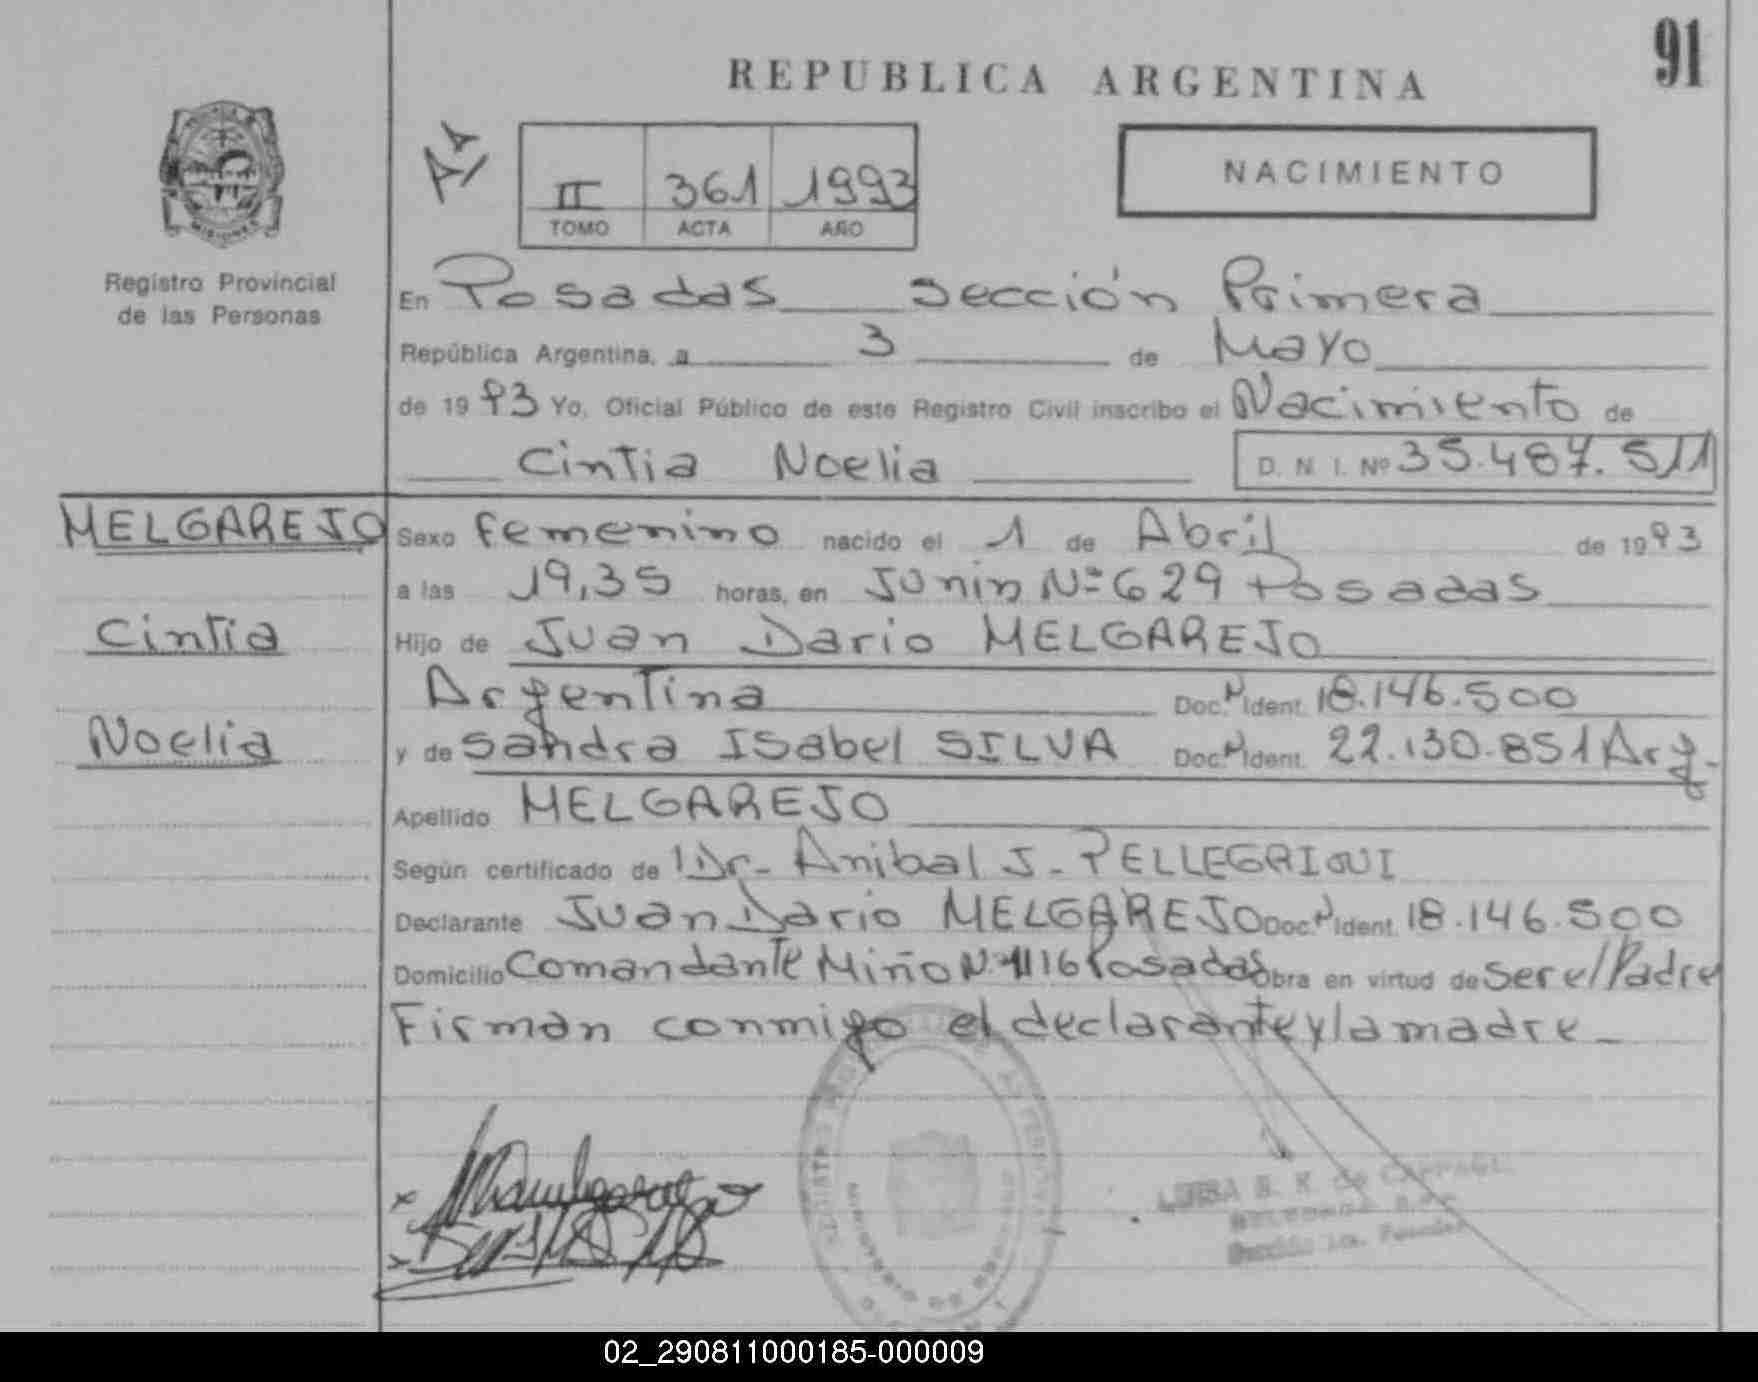 91
REPUBLICA ARGENTINA
NACIMIENTO
II 361 1993
TOMO ACTA AÑO
MISIONES
Registro Provincial
de las Personas
En Posadas Sección Primera
República Argentina, a 3 de Mayo
de 1993 Yo, Oficial Público de este Registro Civil inscribo el Nacimiento de
Cintia Noelia D. N. I. Nº 35.487.511
MELGAREJO
Cintia
Noelia
Sexo femenino nacido el 1 de Abril de 1993
a las 19,35 horas, en Junin Nº 629 Posadas
Hijo de Juan Dario MELGAREJO
Argentina Doc. N Ident. 18.146.500
y de Sandra Isabel SILVA Doc. N Ident. 22.130.851 Arg.
Apellido MELGAREJO
Según certificado de Dr. Anibal J. PELLEGRINI
Declarante Juan Dario MELGAREJO Doc. N Ident. 18.146.500
Domicilio Comandante Miño Nº 1116 Posadas Obra en virtud de ser el Padre
Firman conmigo el declarante y la madre
02_290811000185-000009